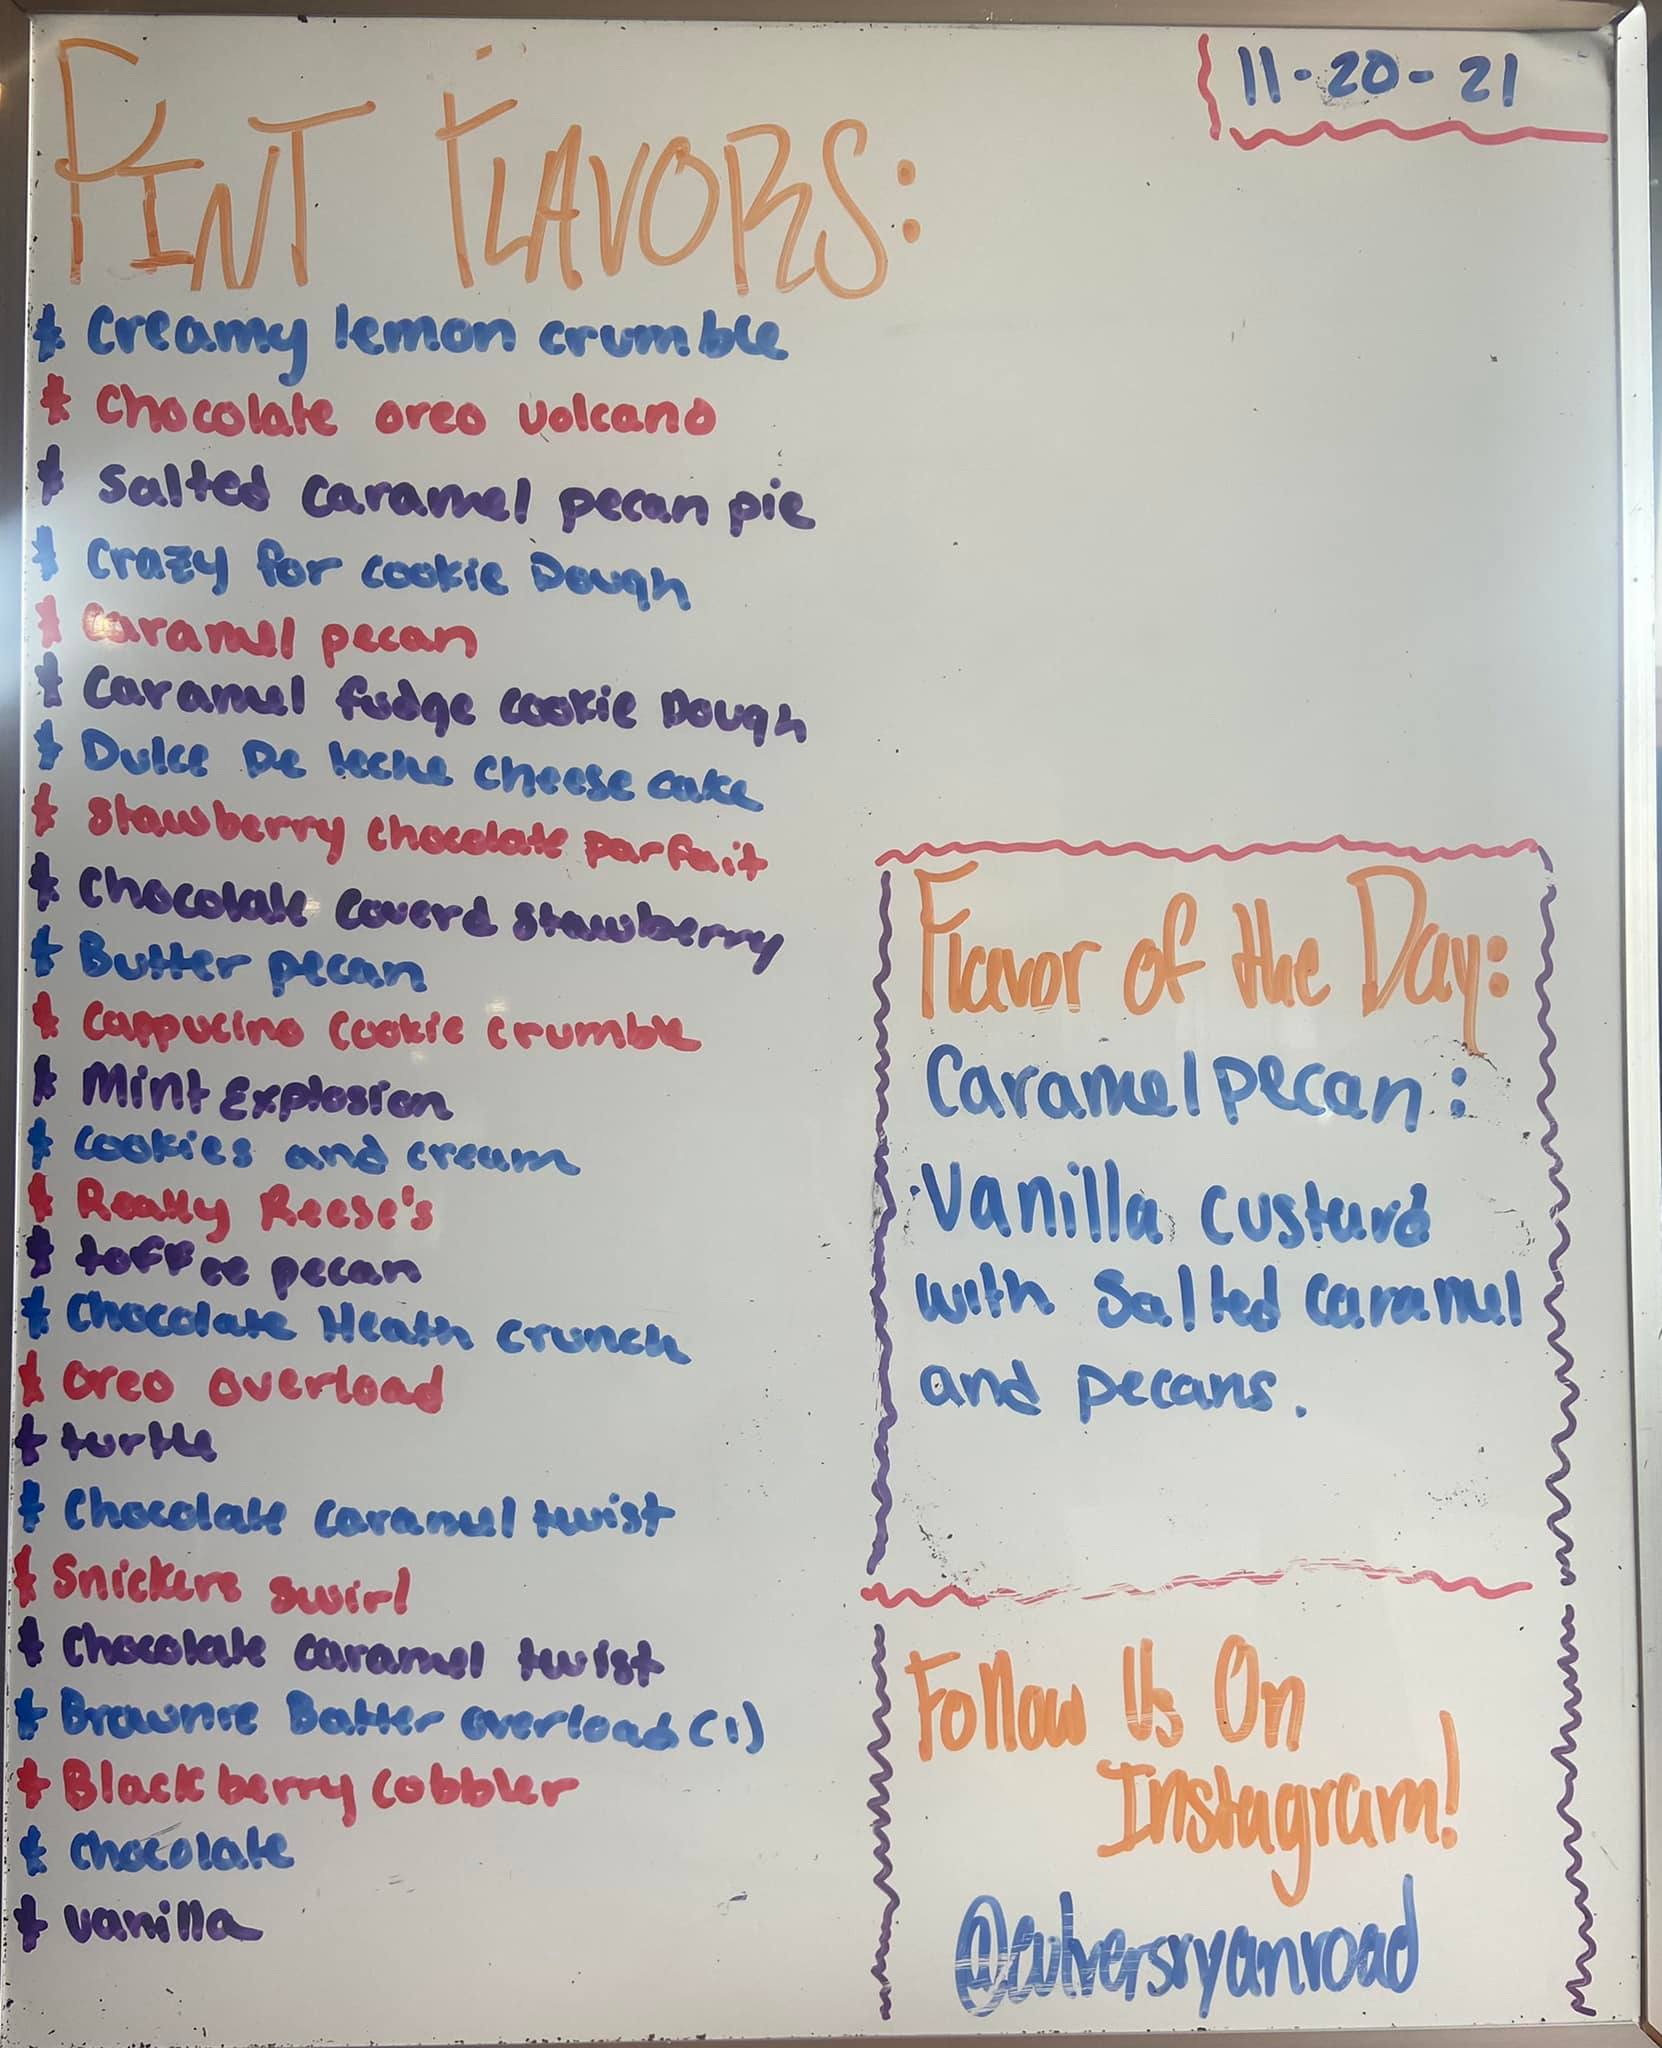 PINT FLAVORS:
11-20-21
* Creamy lemon crumble
* Chocolate oreo volcano
* Salted Caramel pecan pie
* Crazy for cookie Dough
* Caramel pecan
* Caramel fudge cookie Dough
* Dulce De leche cheese cake
* Stawberry chocolate parfait
* Chocolate coverd stawberry
* Butter pecan
* Cappucino Cookie crumble
* Mint Explosion
* Cookies and cream
* Really Reese's
* toffee pecan
* Chocolate Heath crunch
* Oreo overload
* turtle
* Chocolate caramel twist
* Snickers swirl
* Chocolate caramel twist
* Brownie Batter overload (1)
* Blackberry cobbler
* Chocolate
* vanilla
Flavor of the Day:
Caramel pecan:
Vanilla custard
with Salted caramel
and pecans.
Follow Us On
Instagram!
@culversryanroad